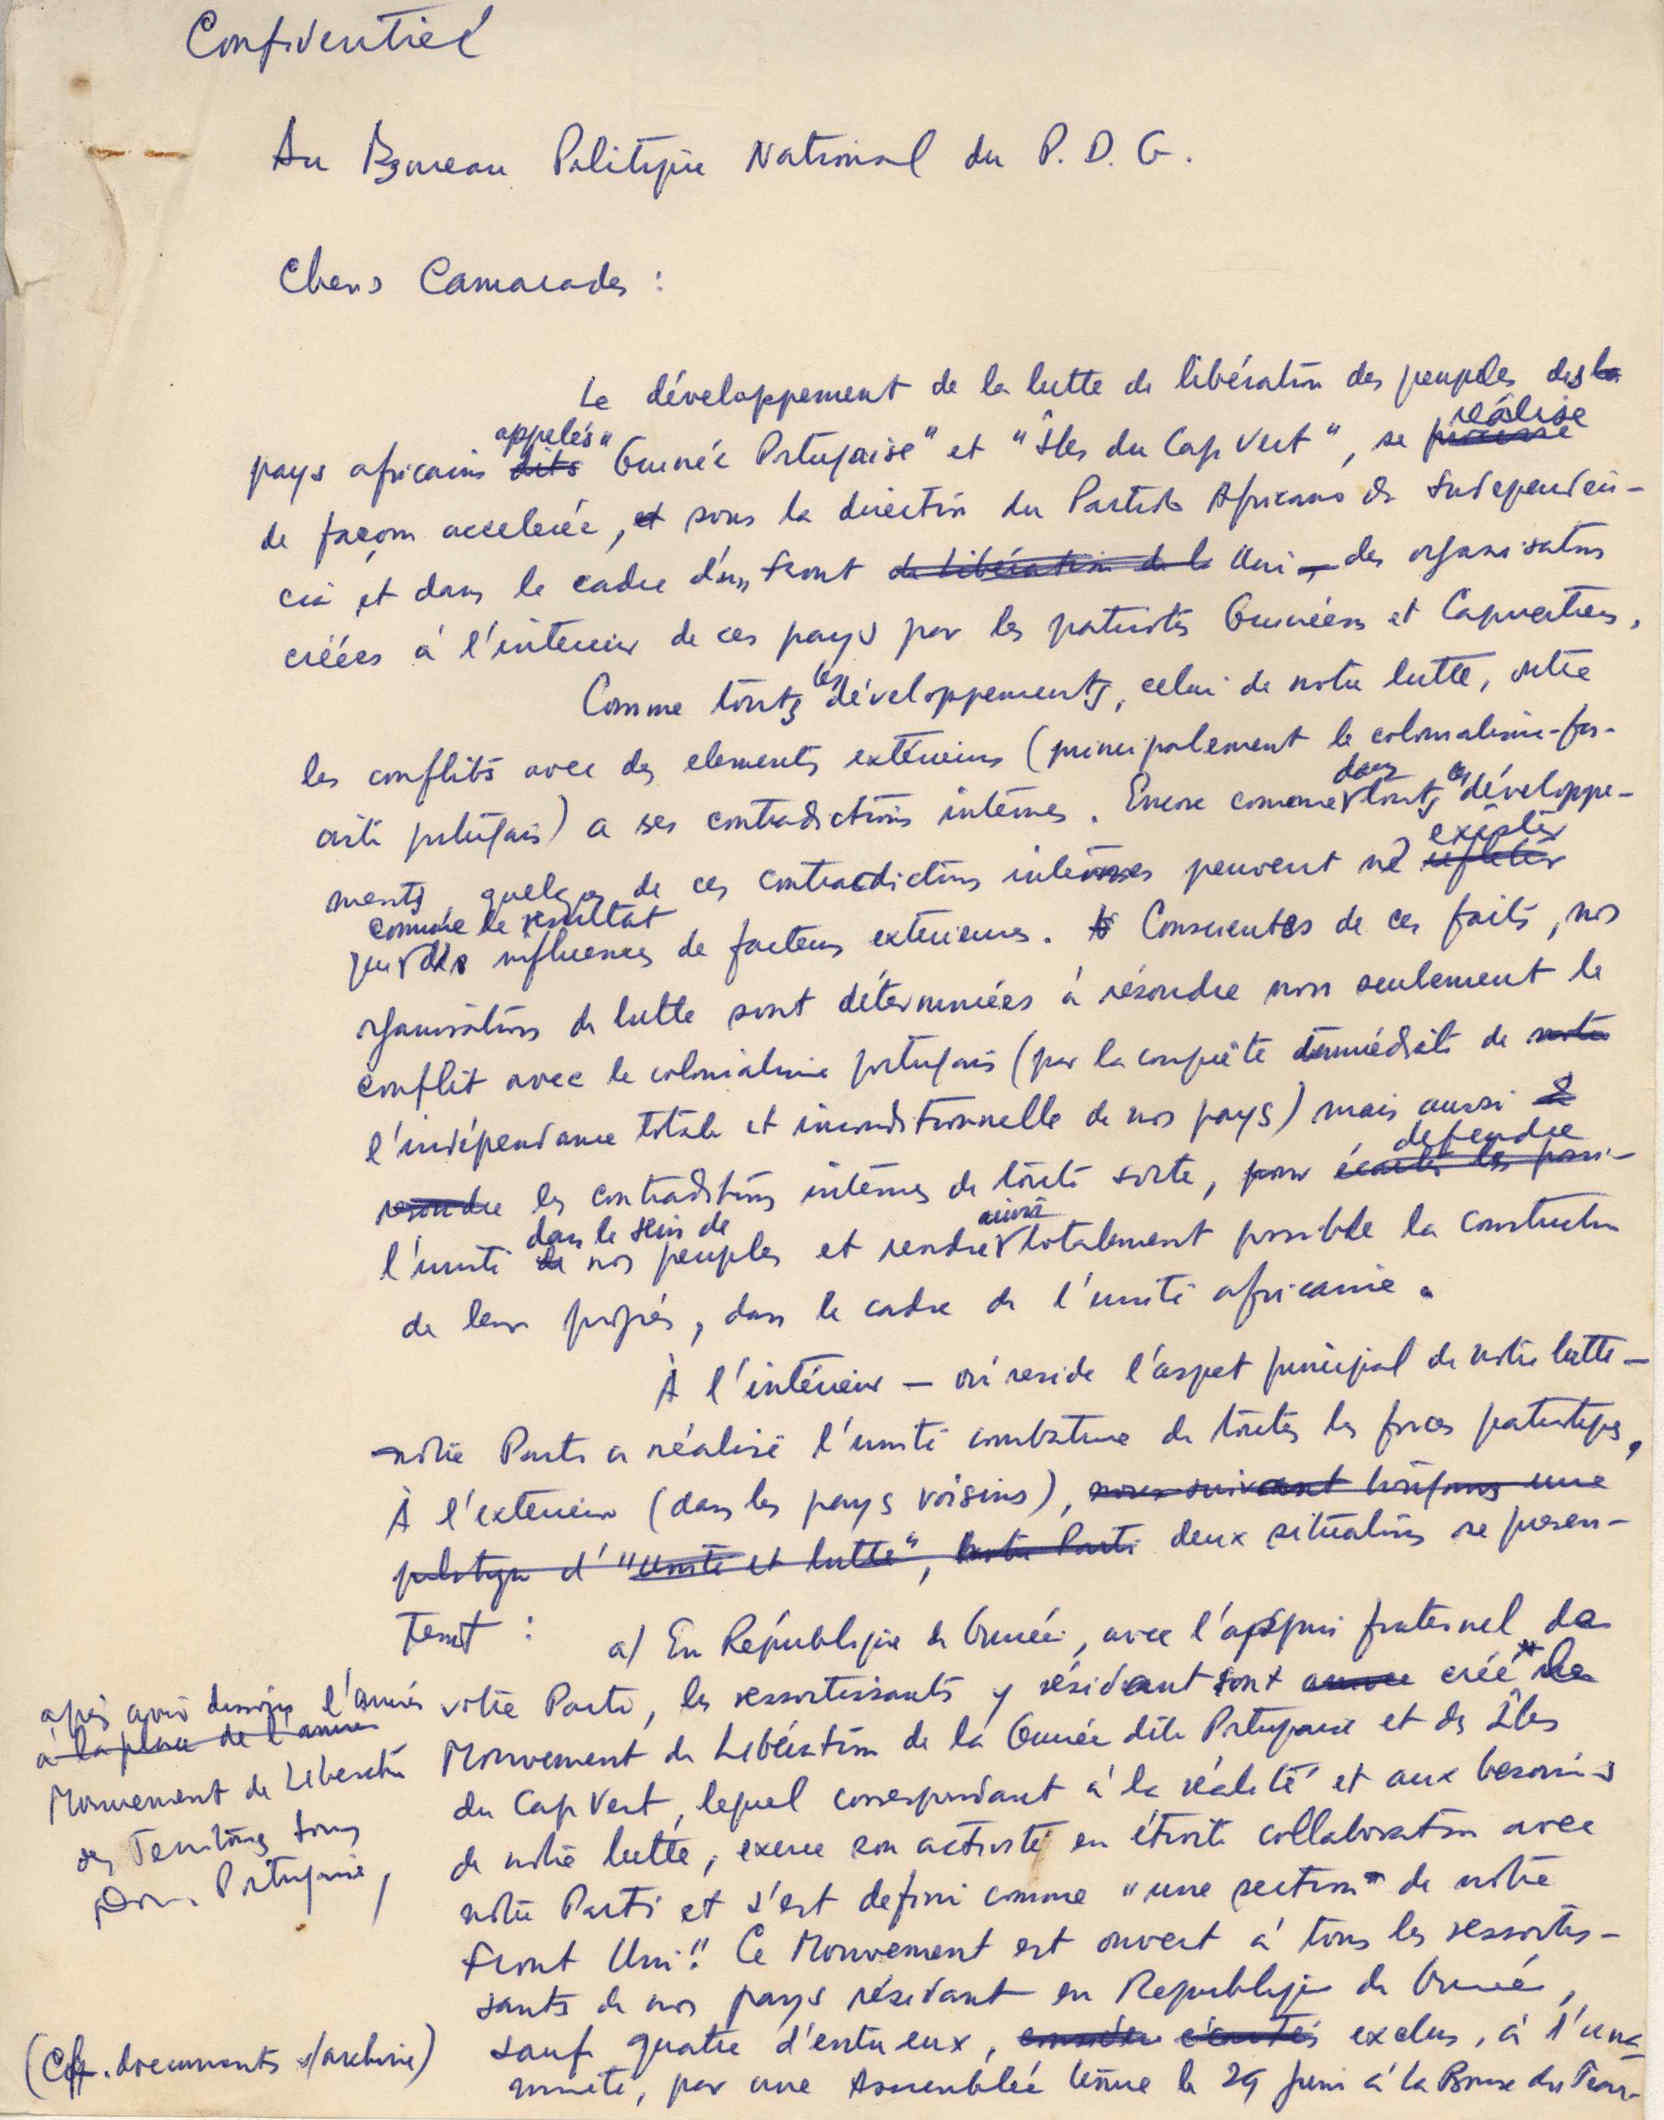 Confidentiel
Au Bureau Politique National du P. D. G.
Chers Camarades :
Le développement de la lutte de libération des peuples des la
pays africains dits appelés "Guinée Portugaise" et "Îles du Cap Vert", se réalise
de façon accelerée, et sous la direction du Partido Africano da Independên-
cia et dans le cadre d'un Front de libération de la Uni des organisations
créées à l'interieur de ces pays par les patriotes Guinéens et Capverdiens.
Comme touts les développements, celui de notre lutte, outre
les conflits avec des elements extérieurs (principalement le colonialisme-fas-
ciste portugais) a ses contradictions internes. Encore comme dans touts les développe-
ments, quelques de ces contradictions internes peuvent ne refleter exister
que comme le resultat des influences de facteurs exterieures. Conscientes de ces faits, nos
organisations de lutte sont déterminées à résoudre non seulement le
conflit avec le colonialisme portugais (par la conquête immédiate de notre
l'indépendance totale et inconditionnelle de nos pays) mais aussi
resoudre les contraditions internes de toute sorte, pour écarter les defendre
l'unité de dans le sein de nos peuples et rendre ainsi totalement possible la construction
de leur progrès, dans le cadre de l'unité africaine.
À l'intérieur — où reside l'aspet principal de notre lutte —
notre Parti a réalisé l'unité combative de toutes les forces patriotiques,
À l'exterieur (dans les pays voisins), nous suivant toujours une
politique d'"unité et lutte", notre Parti deux situations se presen-
tent :
a) En République de Guinée, avec l'appui fraternel de
votre Parti, les ressortissants y résidant sont créé* le
Mouvement de Libération de la Guinée dite Portugaise et des Îles
du Cap Vert, lequel correspondant à la réalité et aux besoins
de notre lutte, exerce son activité en étroite collaboration avec
notre Parti et s'est defini comme "une section de notre
Front Uni". Ce Mouvement est ouvert à tous les ressortis-
sants de nos pays résidant en Republique de Guinée,
sauf quatre d'entre eux, écartés exclus, à l'una
nimité, par une Assemblée tenue le 29 juin à la Bourse du Trav-
après avoir dissous l'ancien
à la place de l'ancien
Mouvement de Liberation
des Territoires sous
Dom. Portugaise,
(Cf. documents s/archive)